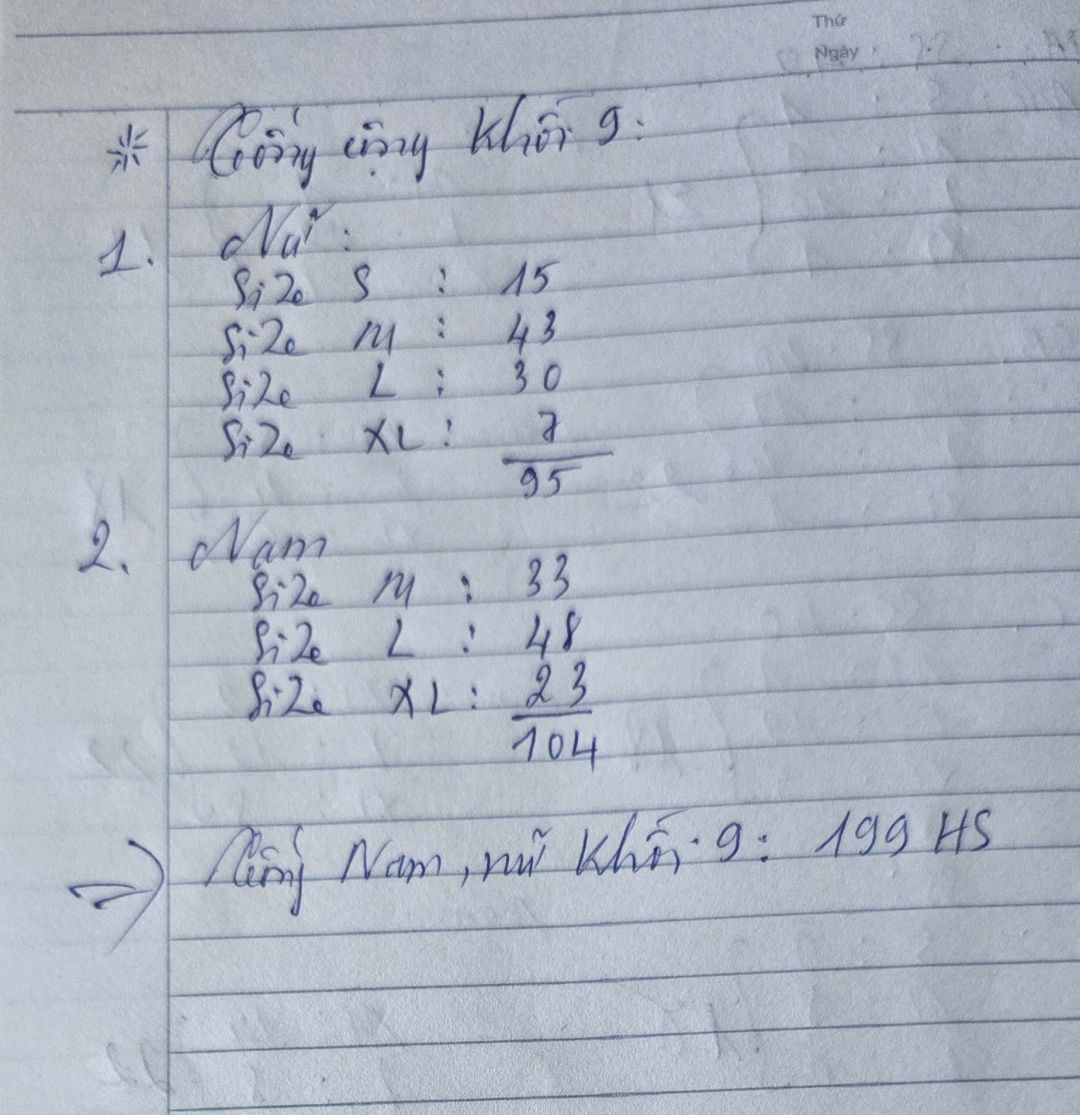 Thứ
Ngày
* Tổng cộng Khối 9:
1. Nữ:
Size S : 15
Size M : 43
Size L : 30
Size XL : 7
95
2. Nam
Size M : 33
Size L : 48
Size XL : 23
104
=> Tổng Nam, nữ Khối 9: 199 HS